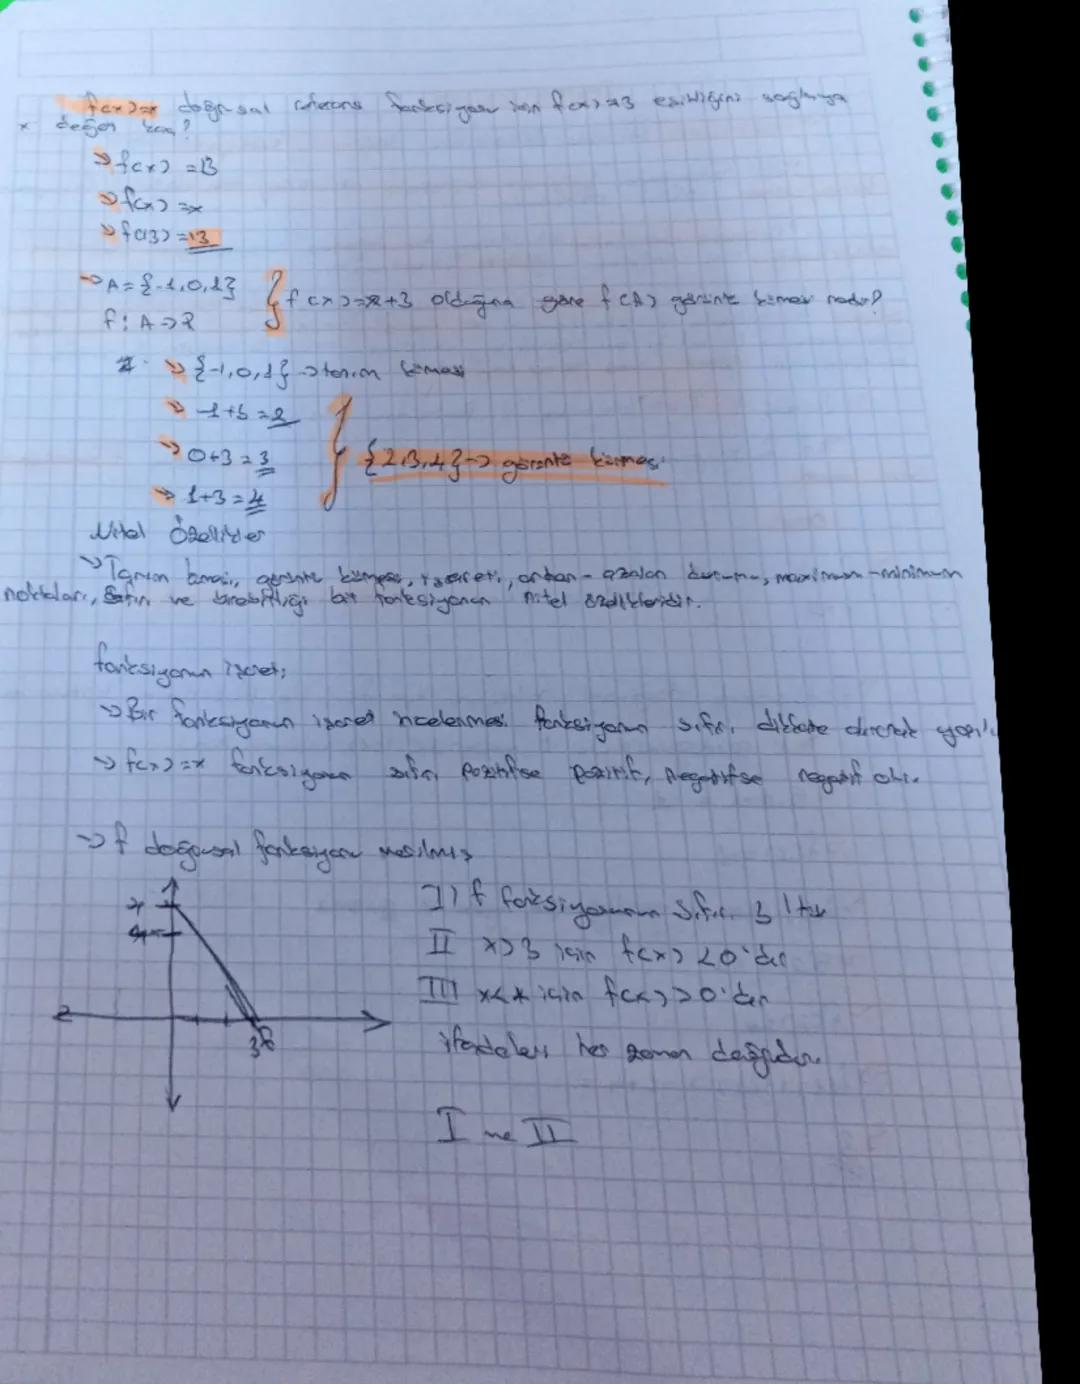 f(x)=x doğrusal referans fonksiyonu için f(x)=13 eşitliğini sağlayan
x değeri kaç?
→ f(x) = 13
→ f(x) = x
→ f(13) = 13
→ A = {-1, 0, 1} } f(x) = x+3 olduğuna göre f(A) görüntü kümesi nedir?
f: A → R
→ {-1, 0, 1} → tanım kümesi
→ -1+3 = 2
→ 0+3 = 3 } {2, 3, 4} → görüntü kümesi
→ 1+3 = 4
Nitel Özellikler
→ Tanım kümesi, görüntü kümesi, işareti, artan - azalan durumu, maximum - minimum
noktaları, sıfırı ve birebirliği bir fonksiyonun nitel özellikleridir.
fonksiyonun işareti
→ Bir fonksiyonun işaret incelenmesi fonksiyonun sıfırı dikkate alınarak
→ f(x) = x fonksiyonun sıfırı pozitifse pozitif, negatifse negatif olur.
→ f doğrusal fonksiyonu
I) f fonksiyonunun sıfırı 3'tür
II x>3 için f(x) <0'dır
III x<4 için f(x) >0'dır
ifadeleri her zaman doğrudur.
4
3
I ve II